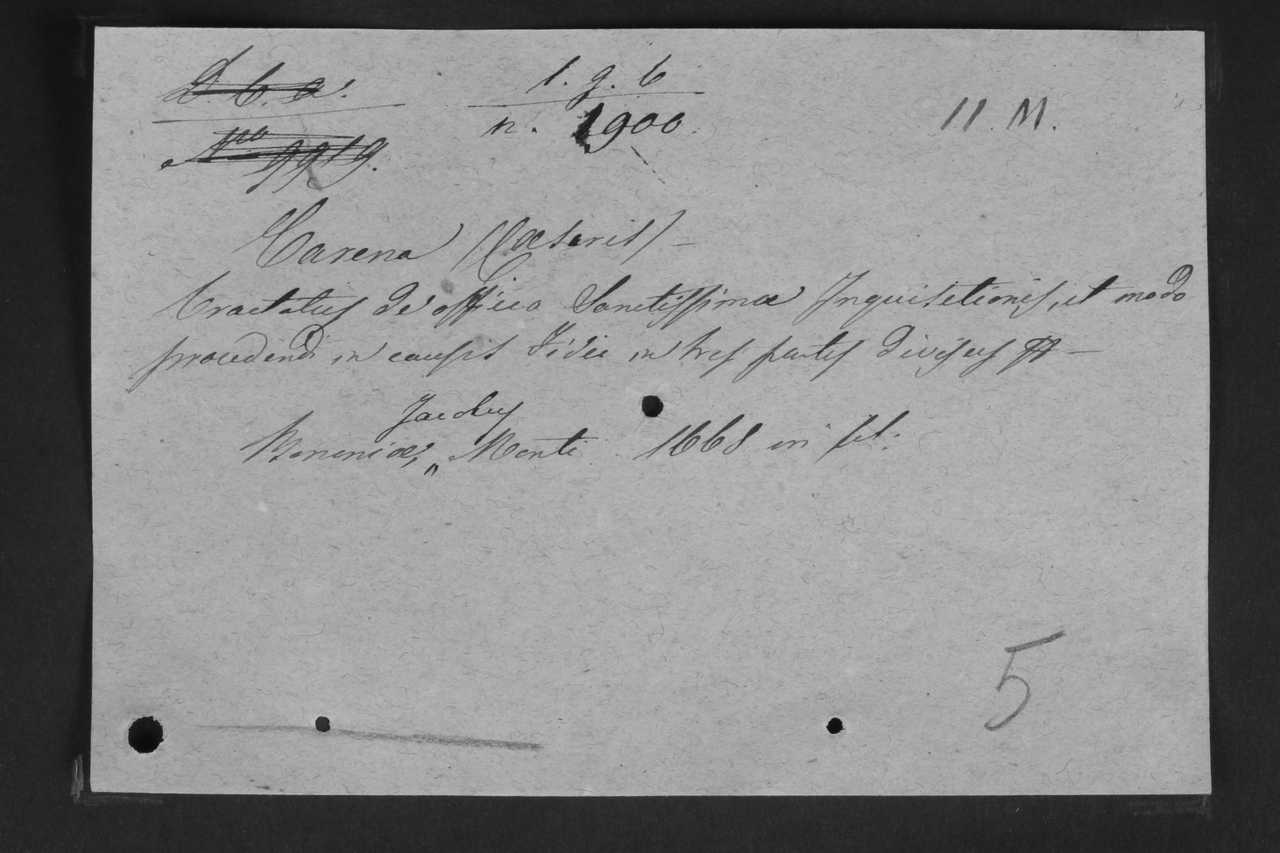 D. b. a. 1. g. b 11. M.
Nro 9919. n. 1900.
Carena (Cæsaris) –
Tractatus de officio Sanctissimæ Inquisitionis, et modo
procedendi in causis Fidei in tres partes divisus –
Jacobus
Bononiæ, „ Monti 1668 in fol:
5